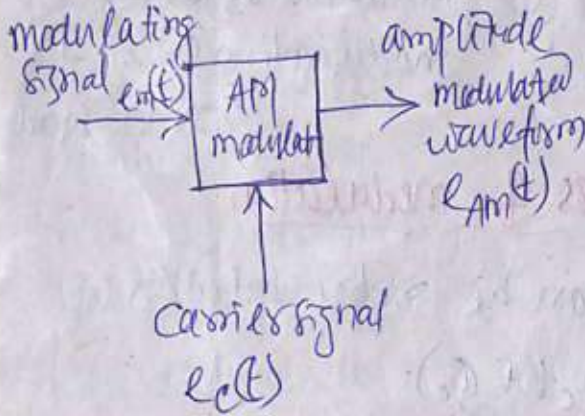 modulating
signal em(t)
AM
modulat
amplitude
modulated
waveform
eAm(t)
Carrier signal
ec(t)